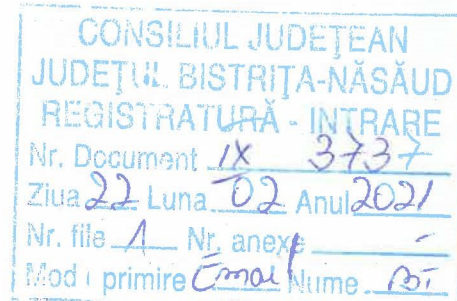 CONSILIUL JUDEŢEAN
JUDEŢUL BISTRIŢA-NĂSĂUD
REGISTRATURĂ - INTRARE
Nr. Document IX 3737
Ziua 22 Luna 02 Anul 2021
Nr. file 1 Nr. anexe -
Mod primire Email Nume